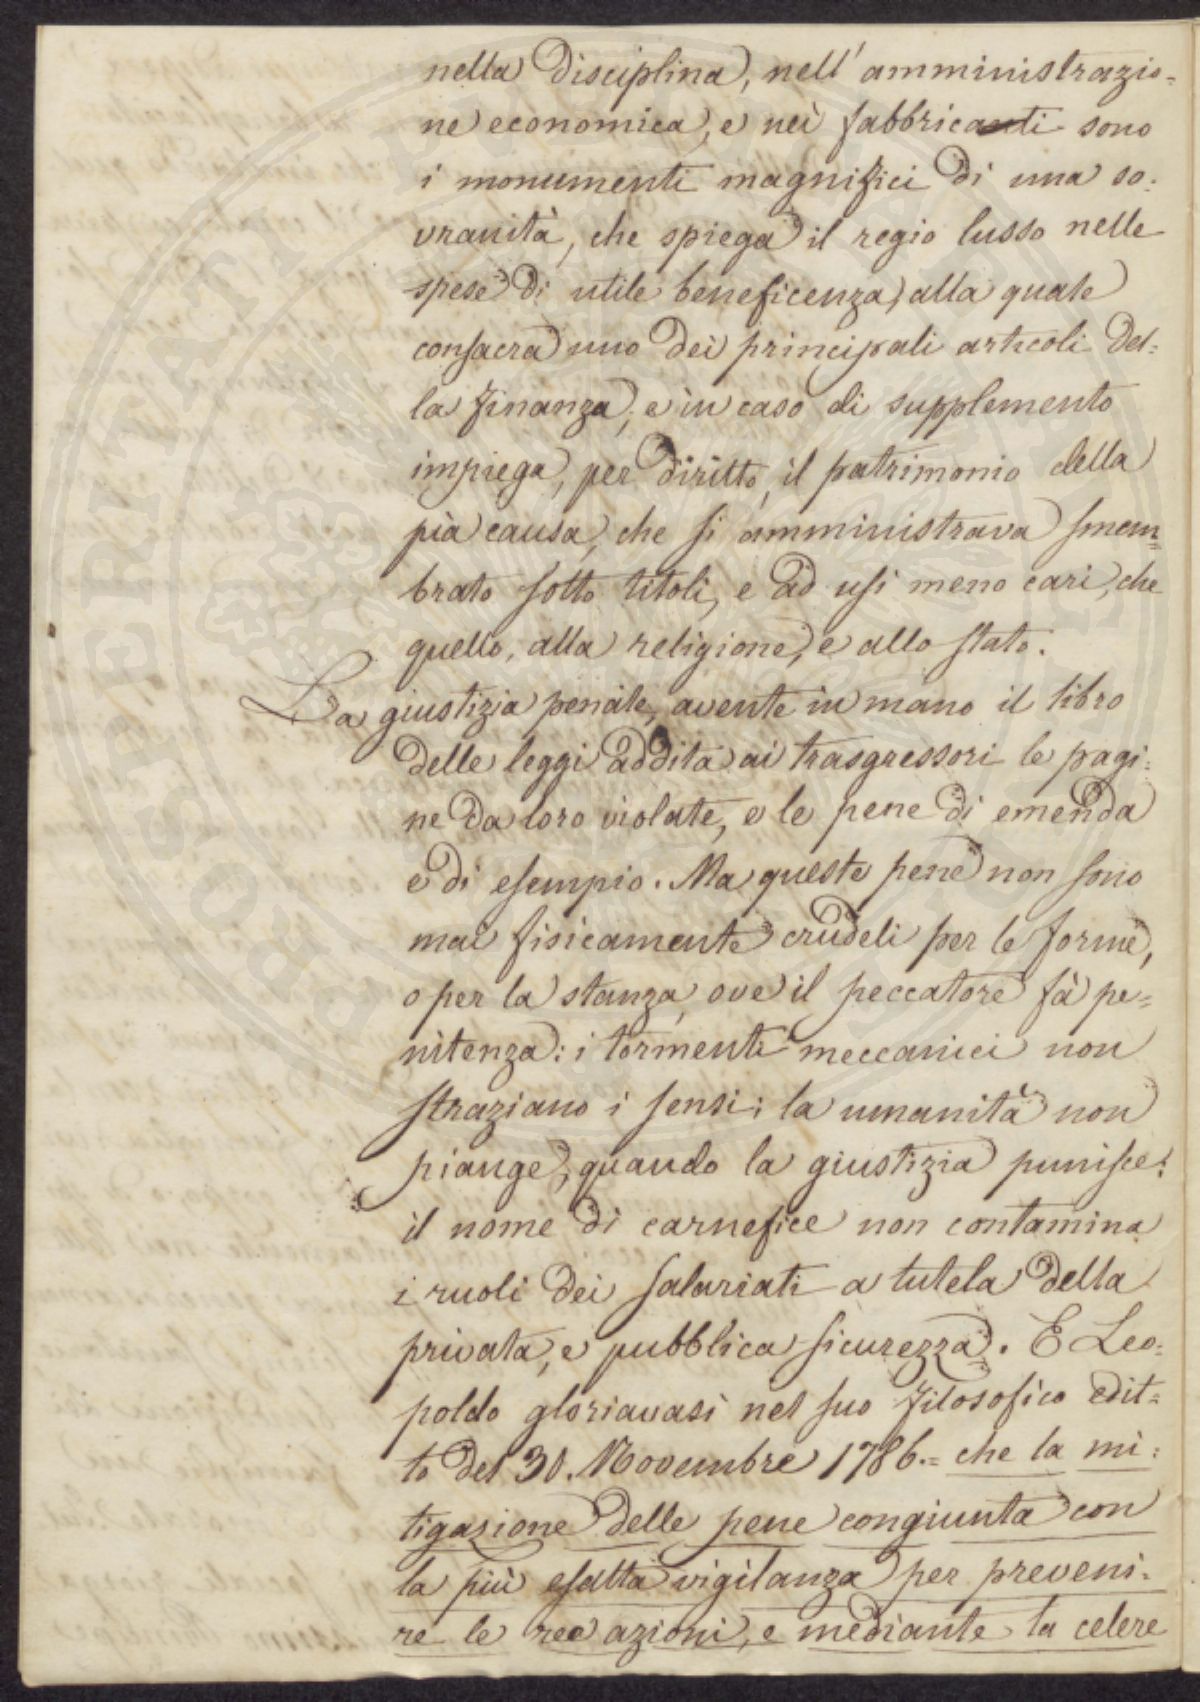 nella disciplina, nell'amministrazio-
ne economica, e nei fabbricanti sono
i monumenti magnifici di una so-
vranità, che spiega il regio lusso nelle
spese di utile beneficenza, alla quale
consacra uno dei principali articoli del-
la finanza, e in caso di supplemento
impiega, per diritto, il patrimonio della
pia causa, che si amministrava smem-
brato sotto titoli, e ad usi meno cari, che
quello, alla religione, e allo stato.
La giustizia penale, avente in mano il libro
delle leggi addita ai trasgressori le pagi-
ne da loro violate, e le pene di emenda
e di esempio. Ma queste pene non sono
mai fisicamente crudeli per le forme,
o per la stanza, ove il peccatore fà pe-
nitenza: i tormenti meccanici non
straziano i sensi: la umanità non
piange, quando la giustizia punisce:
il nome di carnefice non contamina
i ruoli dei salariati a tutela della
privata, e pubblica sicurezza. E Leo-
poldo gloriavasi nel suo filosofico edit-
to del 30. Novembre 1786.= che la mi-
tigazione delle pene congiunta con
la più esatta vigilanza per preveni-
re le ree azioni, e mediante la celere
PROSPERITATI PUBLICAE